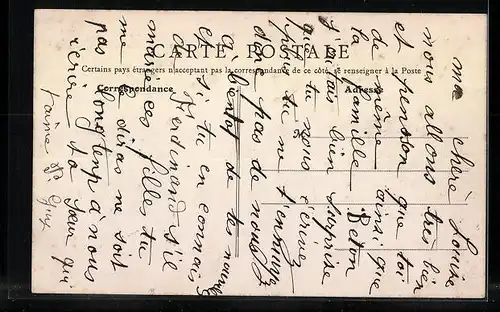 CARTE POSTALE
Certains pays étrangers n'acceptant pas la correspondance de ce côté, se renseigner à la Poste
Correspondance
Adresse
ma chère Louise
nous allons très bien
et pension que toi
de même ainsi que
la famille Beton
j'ai bien surprise
que tu nous écrivez
pour tu ne t'ennuye
donc pas de nous
à bientôt de tes nouvelles
si tu en connais
Ferdinand s'il
marie ces filles tu
me le diras ne soit
pas longtemp à nous
écrire ta sœur qui
t'aime